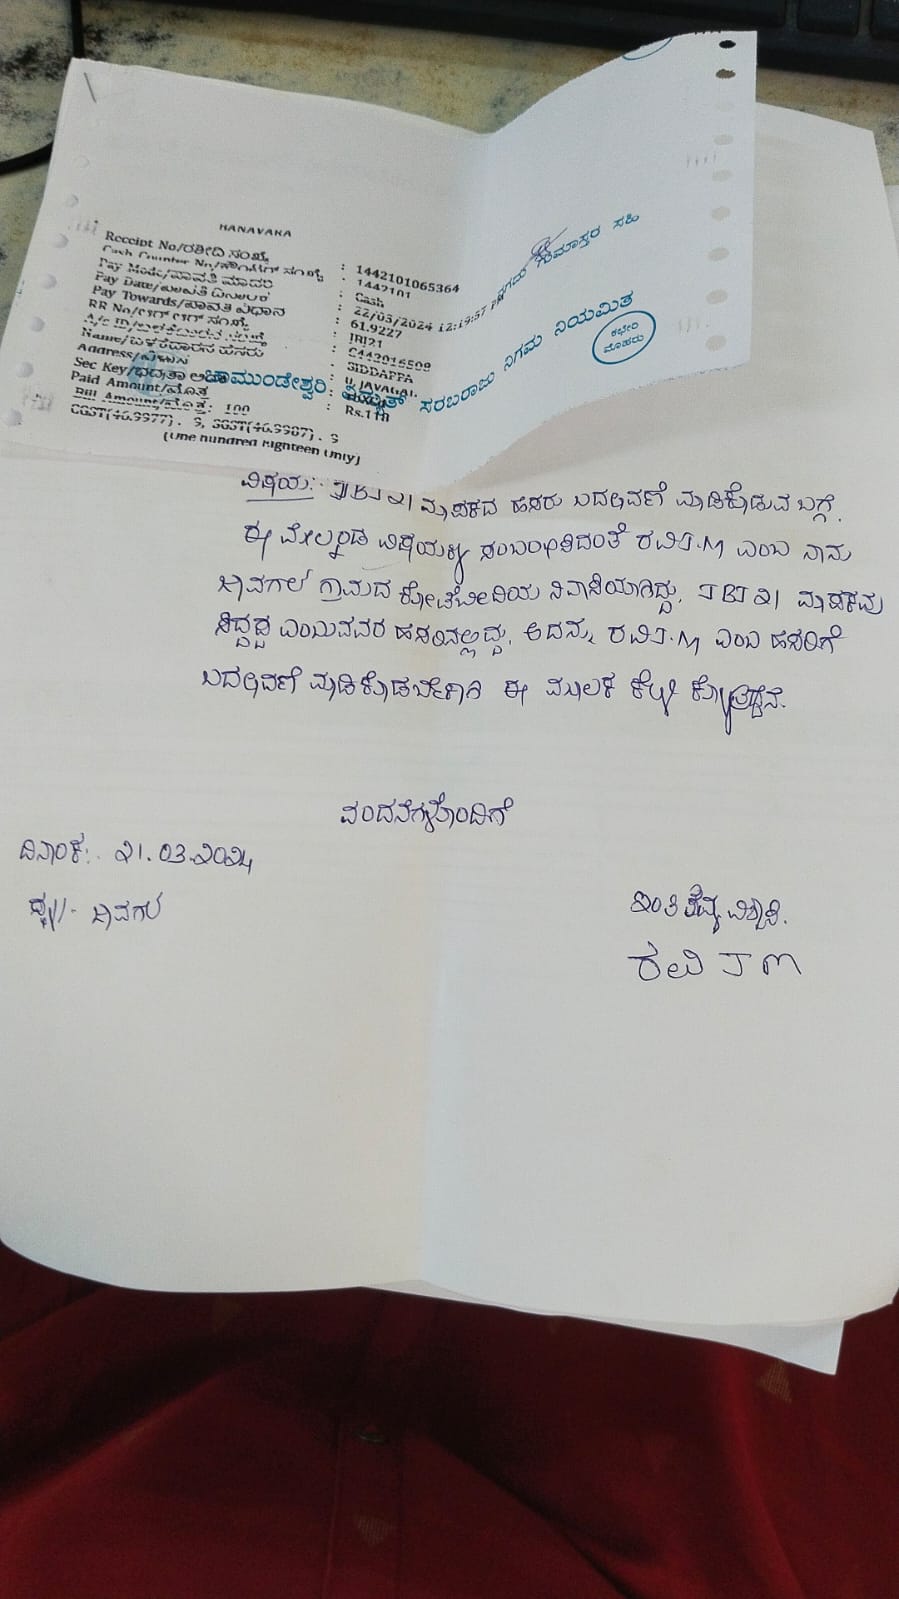 HANAVARA
Receipt No/ರಶೀದಿ ಸಂಖ್ಯೆ : 1442101065364
Cash Counter No/ಕೌಂಟರ್ ಸಂಖ್ಯೆ : 1442101
Pay Mode/ಪಾವತಿ ಮಾದರಿ : Cash
Pay Date/ಪಾವತಿ ದಿನಾಂಕ : 22/03/2024 12:19:57 PM
Pay Towards/ಪಾವತಿ ವಿಧಾನ : 61.9227
RR No/ಆರ್ ಆರ್ ಸಂಖ್ಯೆ : JBJ21
: 5442016509
Name/ಬಳಕೆದಾರನ ಹೆಸರು : SIDDAPPA
Address/ವಿಳಾಸ : JAVAGAL
Sec Key/ಭದ್ರತಾ
Paid Amount/ಮೊತ್ತ : Rs.118
Bill Amount/ಮೊತ್ತ: 100
(One hundred Eighteen Only)
ನಗದು ಗುಮಾಸ್ತರ ಸಹಿ
ಚಾಮುಂಡೇಶ್ವರಿ ವಿದ್ಯುತ್ ಸರಬರಾಜು ನಿಗಮ ನಿಯಮಿತ
ಕಛೇರಿ
ಮೊಹರು
ವಿಷಯ: JBJ 21 ಮಾಪಕದ ಹೆಸರು ಬದಲಾವಣೆ ಮಾಡಿಕೊಡುವ ಬಗ್ಗೆ.
ಈ ಮೇಲ್ಕಂಡ ವಿಷಯಕ್ಕೆ ಸಂಬಂಧಿಸಿದಂತೆ ರವಿ J.M ಎಂಬ ನಾನು
ಜಾವಗಲ್ ಗ್ರಾಮದ ಕೋಟೆಬೀದಿಯ ನಿವಾಸಿಯಾಗಿದ್ದು, JBJ 21 ಮಾಪಕವು
ಸಿದ್ದಪ್ಪ ಎಂಬುವವರ ಹೆಸರಿನಲ್ಲಿದ್ದು, ಅದನ್ನು ರವಿ J.M ಎಂಬ ಹೆಸರಿಗೆ
ಬದಲಾವಣೆ ಮಾಡಿಕೊಡಬೇಕಾಗಿ ಈ ಮೂಲಕ ಕೇಳಿ ಕೊಳ್ಳುತ್ತೇನೆ.
ವಂದನೆಗಳೊಂದಿಗೆ
ದಿನಾಂಕ: 21.03.2024
ಸ್ಥಳ:- ಜಾವಗಲ್
ಇಂತಿ ತಮ್ಮ ವಿಶ್ವಾಸಿ.
ರವಿ J M